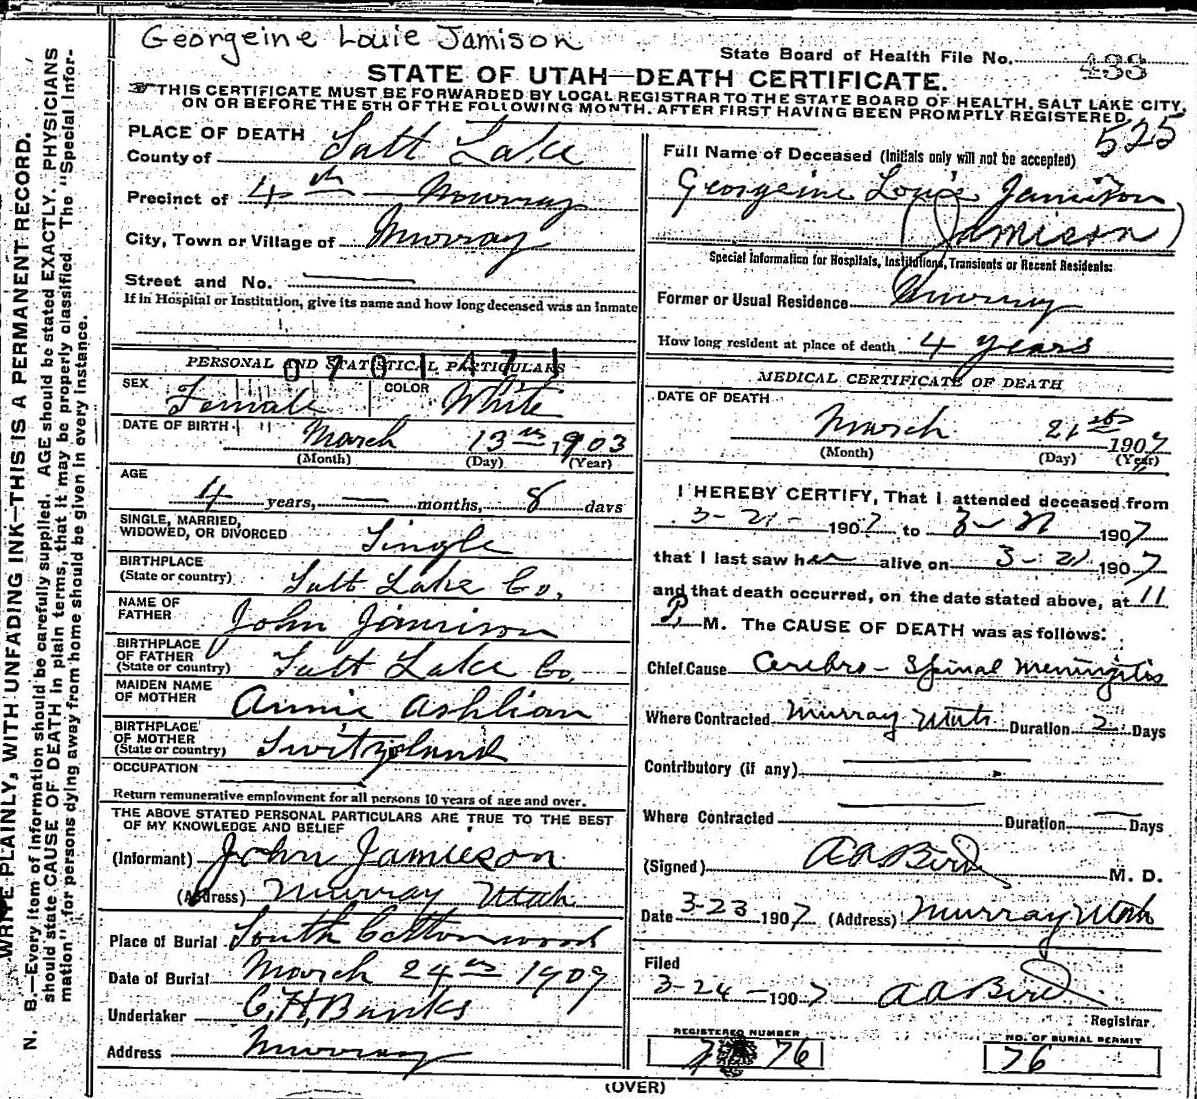 Georgeine Louie Jamison
State Board of Health File No. 433
STATE OF UTAH—DEATH CERTIFICATE.
THIS CERTIFICATE MUST BE FORWARDED BY LOCAL REGISTRAR TO THE STATE BOARD OF HEALTH, SALT LAKE CITY,
ON OR BEFORE THE 5TH OF THE FOLLOWING MONTH, AFTER FIRST HAVING BEEN PROMPTLY REGISTERED.
525
WRITE PLAINLY, WITH UNFADING INK—THIS IS A PERMANENT RECORD.
N. B.—Every item of information should be carefully supplied. AGE should be stated EXACTLY. PHYSICIANS
should state CAUSE OF DEATH in plain terms, that it may be properly classified. The "Special Infor-
mation" for persons dying away from home should be given in every instance.
PLACE OF DEATH
County of Salt Lake
Precinct of 4th Murray
City, Town or Village of Murray
Street and No.
If in Hospital or Institution, give its name and how long deceased was an inmate
PERSONAL AND STATISTICAL PARTICULARS
0701471
SEX Female COLOR White
DATE OF BIRTH March 13th 1903
(Month) (Day) (Year)
AGE
4 years, — months, 8 days
SINGLE, MARRIED,
WIDOWED, OR DIVORCED Single
BIRTHPLACE
(State or country) Salt Lake Co.
NAME OF
FATHER John Jamison
BIRTHPLACE
OF FATHER
(State or country) Salt Lake Co.
MAIDEN NAME
OF MOTHER Annie Ashlian
BIRTHPLACE
OF MOTHER
(State or country) Switzland
OCCUPATION
Return remunerative employment for all persons 10 years of age and over.
THE ABOVE STATED PERSONAL PARTICULARS ARE TRUE TO THE BEST
OF MY KNOWLEDGE AND BELIEF
(Informant) John Jamieson
(Address) Murray Utah
Place of Burial South Cottonwood
Date of Burial March 24th 1907
Undertaker C. H. Banks
Address Murray
Full Name of Deceased (Initials only will not be accepted)
Georgeine Louie Jamison
(Jamieson)
Special Information for Hospitals, Institutions, Transients or Recent Residents:
Former or Usual Residence Murray
How long resident at place of death 4 years
MEDICAL CERTIFICATE OF DEATH
DATE OF DEATH
March 21st 1907
(Month) (Day) (Year)
I HEREBY CERTIFY, That I attended deceased from
3-21- 1907 to 3-21 1907
that I last saw her alive on 3-21 1907
and that death occurred, on the date stated above, at 11
P. M. The CAUSE OF DEATH was as follows:
Chief Cause Cerebro-Spinal Meningitis
Where Contracted Murray Utah Duration 2 Days
Contributory (if any)
Where Contracted — Duration — Days
(Signed) A A Bird M. D.
Date 3-23 1907 (Address) Murray Utah
Filed
3-24-1907 A A Bird
Registrar
REGISTERED NUMBER
76
NO. OF BURIAL PERMIT
76
(OVER)